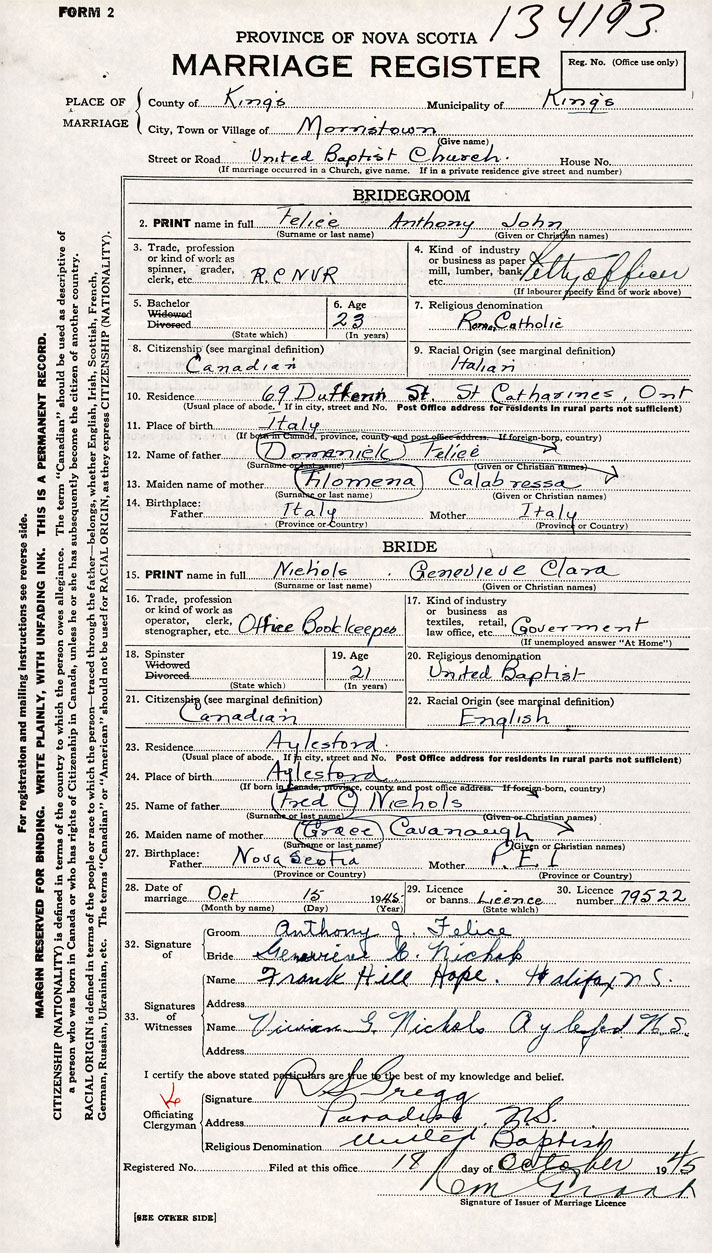 FORM 2
134193
PROVINCE OF NOVA SCOTIA
MARRIAGE REGISTER
Reg. No. (Office use only)
PLACE OF MARRIAGE
County of King's Municipality of King's
City, Town or Village of Morristown
(Give name)
Street or Road United Baptist Church. House No.
(If marriage occurred in a Church, give name. If in a private residence give street and number)
BRIDEGROOM
2. PRINT name in full Felice Anthony John
(Surname or last name) (Given or Christian names)
3. Trade, profession or kind of work as spinner, grader, clerk, etc. R.C.N.V.R
4. Kind of industry or business as paper mill, lumber, bank, etc. Petty officer
(If labourer specify kind of work above)
5. Bachelor Widowed Divorced
(State which)
6. Age 23
(In years)
7. Religious denomination
Roman Catholic
8. Citizenship (see marginal definition)
Canadian
9. Racial Origin (see marginal definition)
Italian
10. Residence 69 Dufferin St. St Catharines, Ont
(Usual place of abode. If in city, street and No. Post Office address for residents in rural parts not sufficient)
11. Place of birth Italy
(If born in Canada, province, county and post office address. If foreign-born, country)
12. Name of father Domenick Felice
(Surname or last name) (Given or Christian names)
13. Maiden name of mother Filomena Calabressa
(Surname or last name) (Given or Christian names)
14. Birthplace: Father Italy Mother Italy
(Province or Country) (Province or Country)
BRIDE
15. PRINT name in full Nichols Genevieve Clara
(Surname or last name) (Given or Christian names)
16. Trade, profession or kind of work as operator, clerk, stenographer, etc. Office Bookkeeper
17. Kind of industry or business as textiles, retail, law office, etc. Goverment
(If unemployed answer "At Home")
18. Spinster Widowed Divorced
(State which)
19. Age 21
(In years)
20. Religious denomination
United Baptist
21. Citizenship (see marginal definition)
Canadian
22. Racial Origin (see marginal definition)
English
23. Residence Aylesford.
(Usual place of abode. If in city, street and No. Post Office address for residents in rural parts not sufficient)
24. Place of birth Aylesford
(If born in Canada, province, county and post office address. If foreign-born, country)
25. Name of father Fred C Nichols
(Surname or last name) (Given or Christian names)
26. Maiden name of mother Grace Cavanaugh
(Surname or last name) (Given or Christian names)
27. Birthplace: Father Nova Scotia Mother P.E.I
(Province or Country) (Province or Country)
28. Date of marriage Oct 15 1945
(Month by name) (Day) (Year)
29. Licence or banns Licence
(State which)
30. Licence number 79522
32. Signature of
Groom Anthony J. Felice
Bride Genevieve C. Nichols
33. Signatures of Witnesses
Name Frank Hill Hope. Halifax N.S.
Address
Name Vivian G. Nichols Aylesford N.S.
Address
I certify the above stated particulars are true to the best of my knowledge and belief.
Officiating Clergyman
Signature R S Gregg
Address Paradise N.S.
Religious Denomination United Baptist
Registered No. Filed at this office 18 day of October 1945
Signature of Issuer of Marriage Licence
[SEE OTHER SIDE]
For registration and mailing instructions see reverse side.
MARGIN RESERVED FOR BINDING. WRITE PLAINLY, WITH UNFADING INK. THIS IS A PERMANENT RECORD.
CITIZENSHIP (NATIONALITY) is defined in terms of the country to which the person owes allegiance. The term "Canadian" should be used as descriptive of
a person who was born in Canada or who has rights of Citizenship in Canada, unless he or she has subsequently become the citizen of another country.
RACIAL ORIGIN is defined in terms of the people or race to which the person—traced through the father—belongs, whether English, Irish, Scottish, French,
German, Russian, Ukrainian, etc. The terms "Canadian" or "American" should not be used for RACIAL ORIGIN, as they express CITIZENSHIP (NATIONALITY).